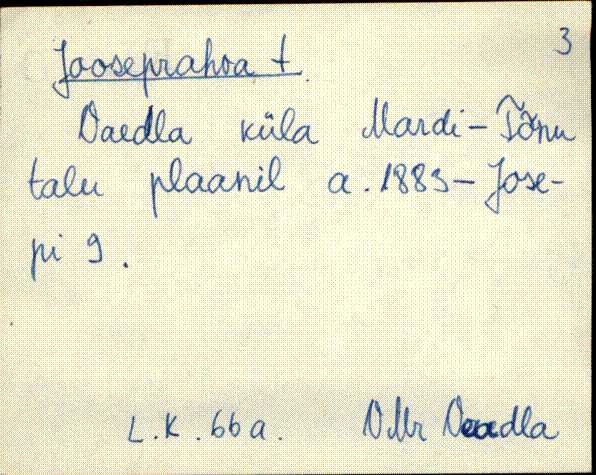 3
Jooseprahva t.
Vaedla küla Mardi-Tõnu
talu plaanil a. 1883 - Jose-
pi 9.
L.K. 66 a. VMr Vaedla